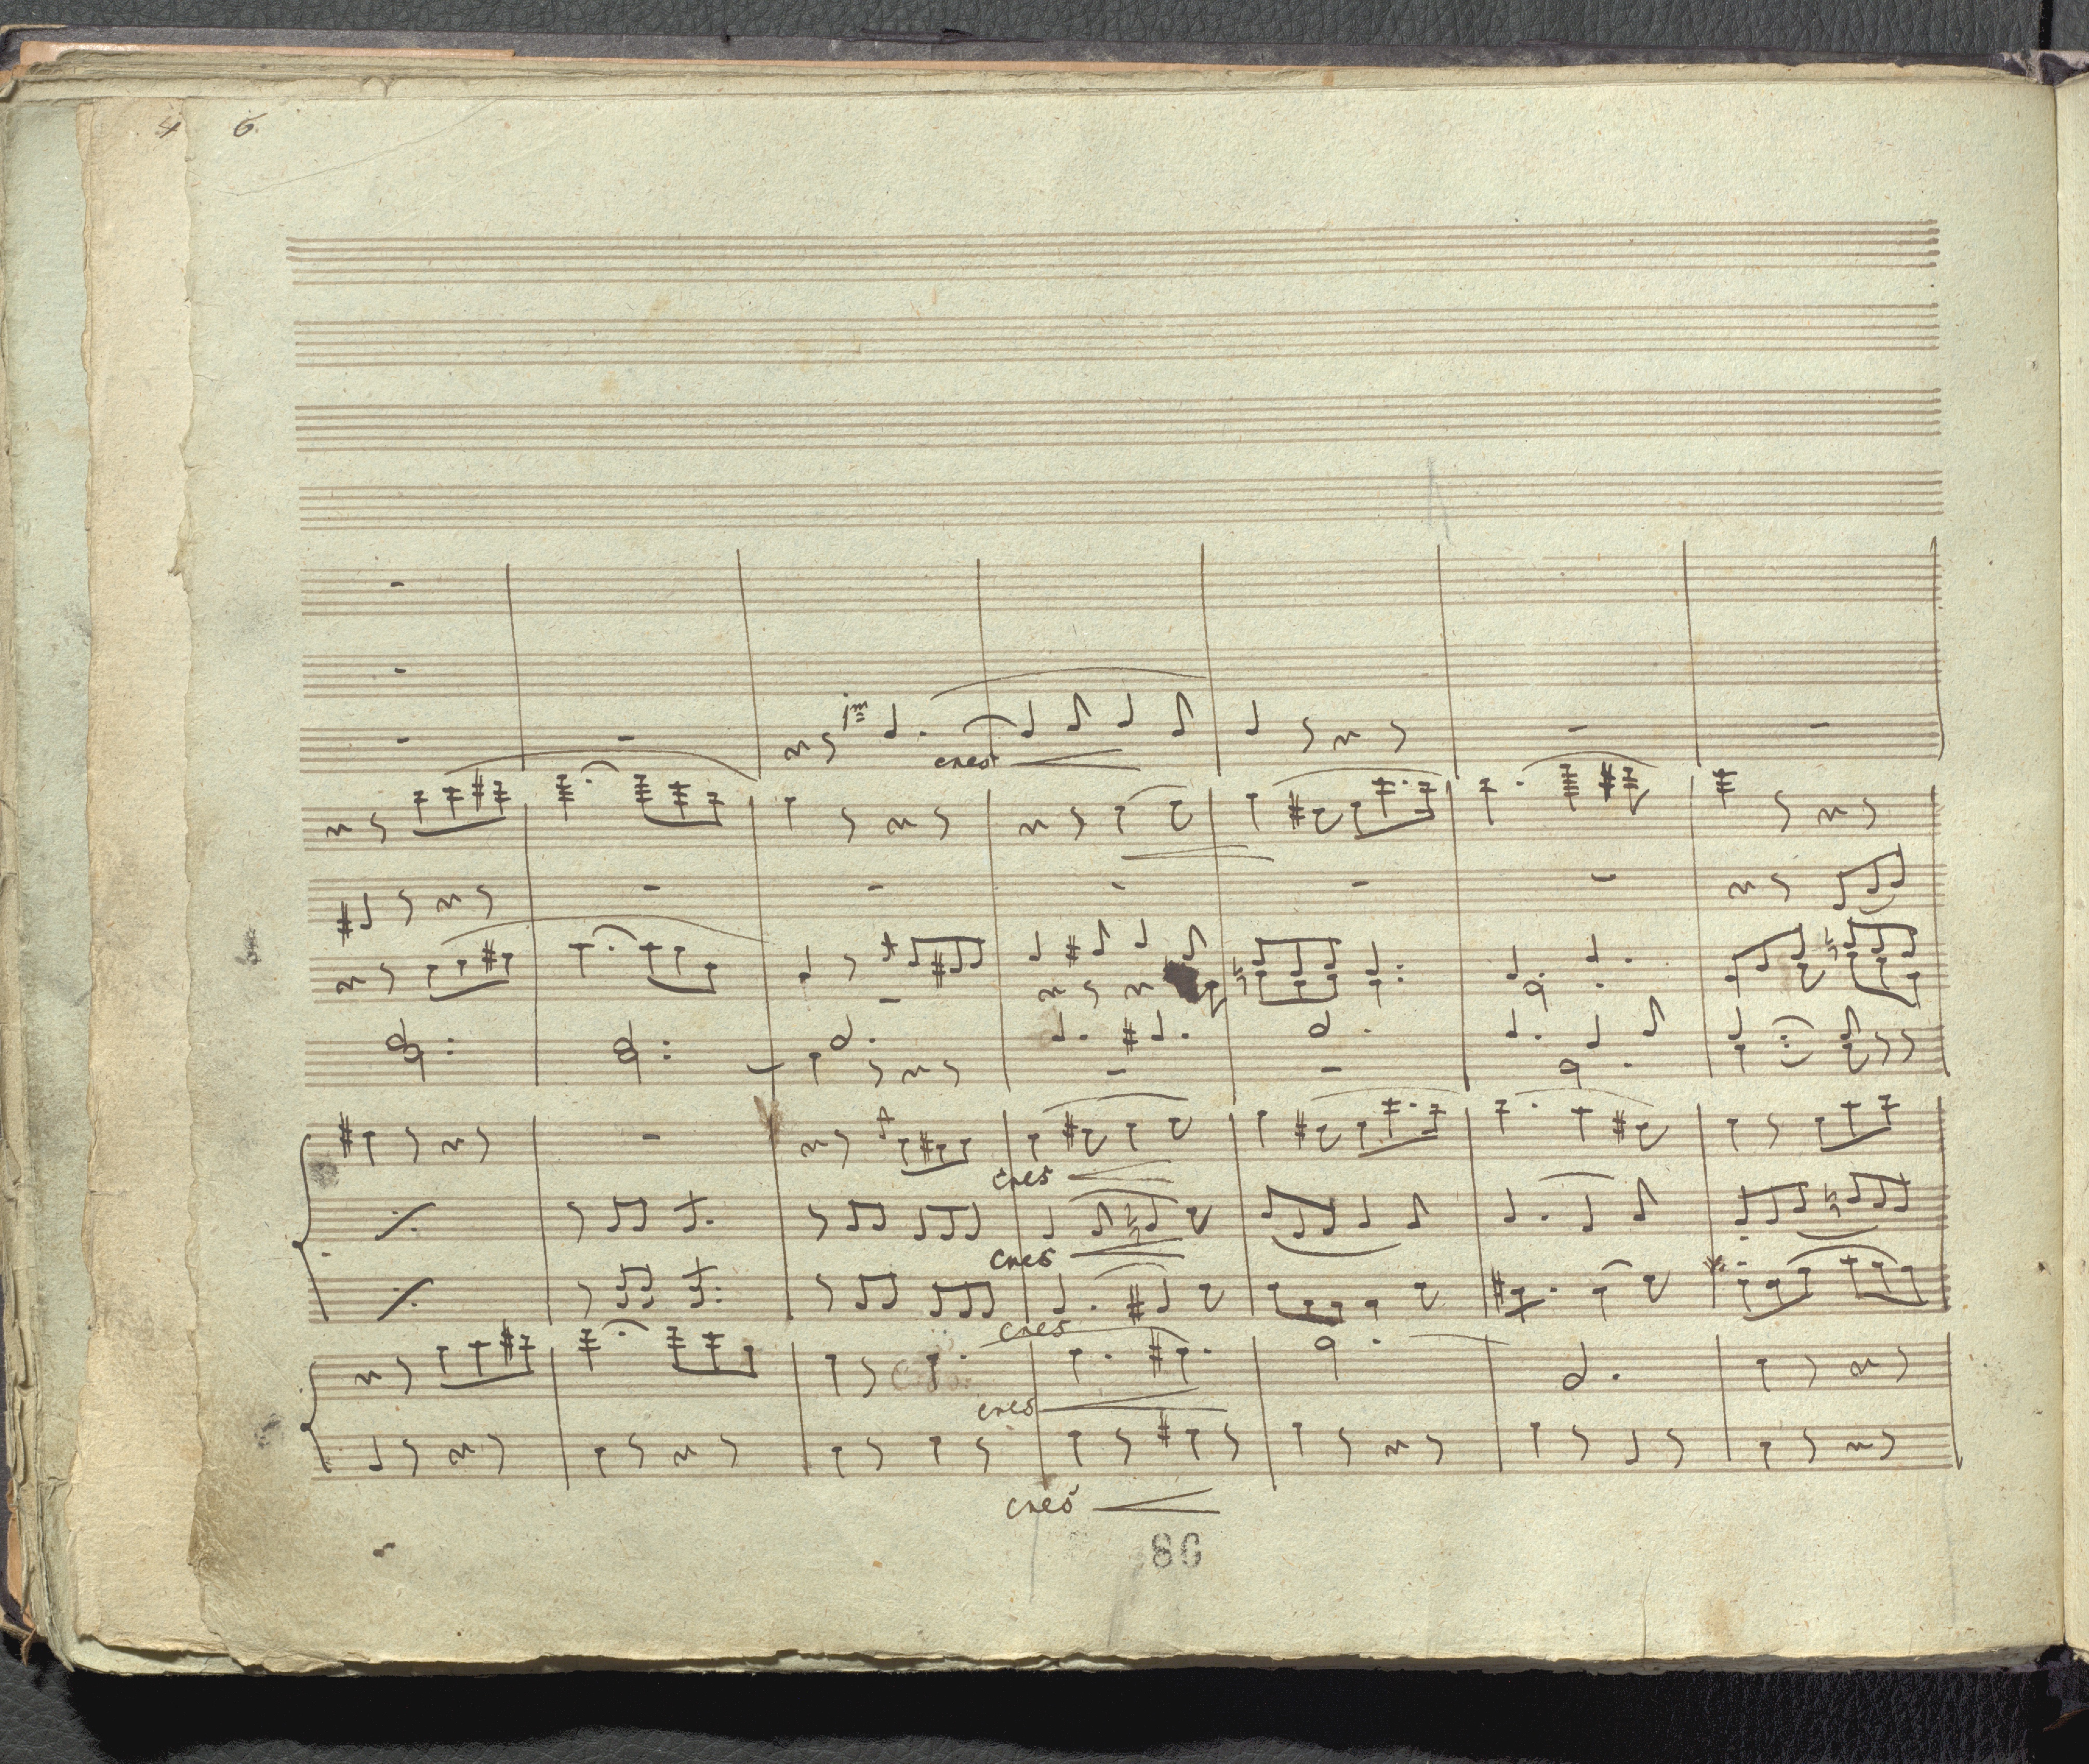 4 6.
1mo
cres
cres
cres
cres
cres
cres
86